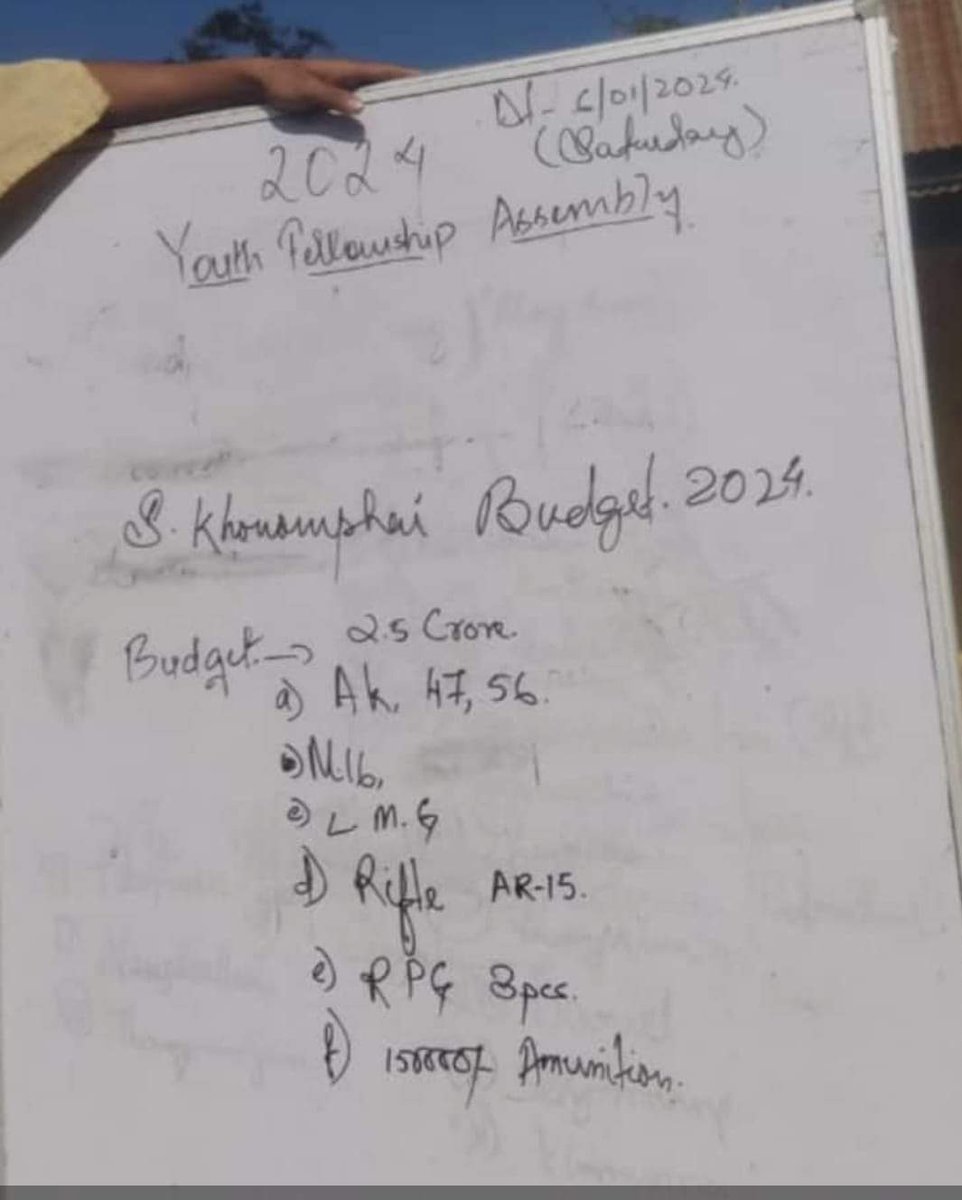 Dt- 6/01/2024.
(Saturday)
2024
Youth Fellowship Assembly.
S. Khonomphai Budget. 2024.
Budget → 2.5 Crore.
a) Ak, 47, 56.
M.16,
c) L M.G
d) Rifle AR-15.
e) RPG 8pcs.
f) Amunition.